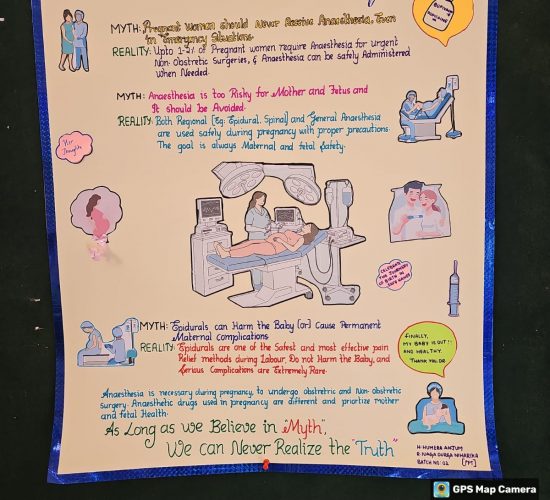 MYTH: Pregnant Woman should Never Receive Anaesthesia, Even
in Emergency Situations.
REALITY: Upto 1-2% of Pregnant women require Anaesthesia for Urgent
Non-Obstretic Surgeries, & Anaesthesia can be safely Administered
When Needed.
MYTH: Anaesthesia is too Risky for Mother and Fetus and
It should be Avoided.
REALITY: Both Regional [Eg: Epidural, Spinal] and General Anaesthesia
are used safely during pregnancy with proper precautions.
The goal is always Maternal and fetal Safety.
CELEBRATE
THE JOURNEY
OF BIRTH IN
SAFE HANDS
MYTH: Epidurals can Harm the Baby [or] Cause Permanent
Maternal complications
REALITY: Epidurals are one of the Safest and most effective pain
Relief methods during Labour, Do not Harm the Baby, and
Serious Complications are Extremely Rare.
FINALLY,
MY BABY IS OUT!!
AND HEALTHY.
THANK YOU DR.
Anaesthesia is necessary during pregnancy, to undergo obstretric and Non-obstretic
Surgery. Anaesthetic drugs used in pregnancy are different and priortize mother
and fetal Health.
As Long as we Believe in "Myth",
We can Never Realize the "Truth"
H. HUMERA ANJUM
R. NAGA DURGA NIHARIKA
BATCH NO: 02 [PM]
GPS Map Camera